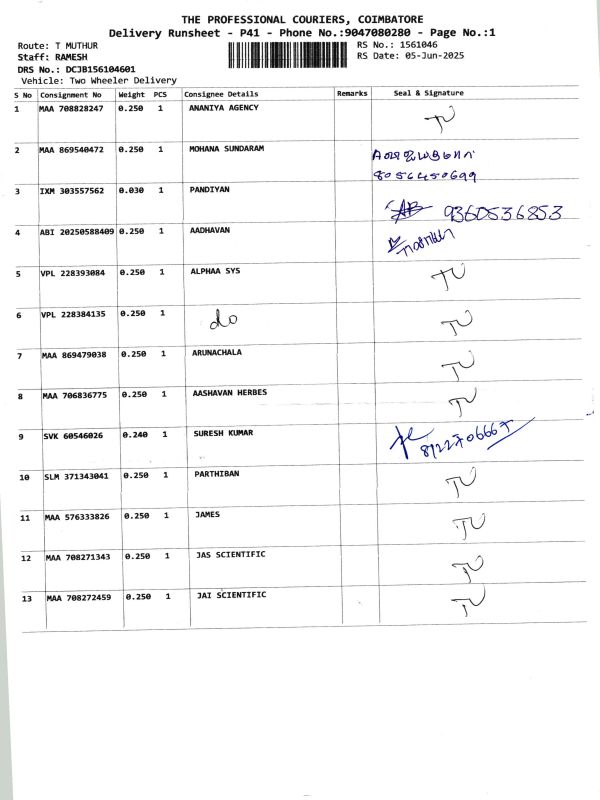 THE PROFESSIONAL COURIERS, COIMBATORE
Delivery Runsheet - P41 - Phone No.:9047080280 - Page No.:1
Route: T MUTHUR RS No.: 1561046
Staff: RAMESH RS Date: 05-Jun-2025
DRS No.: DCJB156104601
Vehicle: Two Wheeler Delivery
S No Consignment No Weight PCS Consignee Details Remarks Seal & Signature
1 MAA 708828247 0.250 1 ANANIYA AGENCY TU
2 MAA 869540472 0.250 1 MOHANA SUNDARAM
8056450699
3 IXM 303557562 0.030 1 PANDIYAN 9360536853
4 ABI 20250588409 0.250 1 AADHAVAN
5 VPL 228393084 0.250 1 ALPHAA SYS TU
6 VPL 228384135 0.250 1 do TU
7 MAA 869479038 0.250 1 ARUNACHALA TU
8 MAA 706836775 0.250 1 AASHAVAN HERBES TU
9 SVK 60546026 0.240 1 SURESH KUMAR 8122706667
10 SLM 371343041 0.250 1 PARTHIBAN TU
11 MAA 576333826 0.250 1 JAMES TU
12 MAA 708271343 0.250 1 JAS SCIENTIFIC TU
13 MAA 708272459 0.250 1 JAI SCIENTIFIC TU